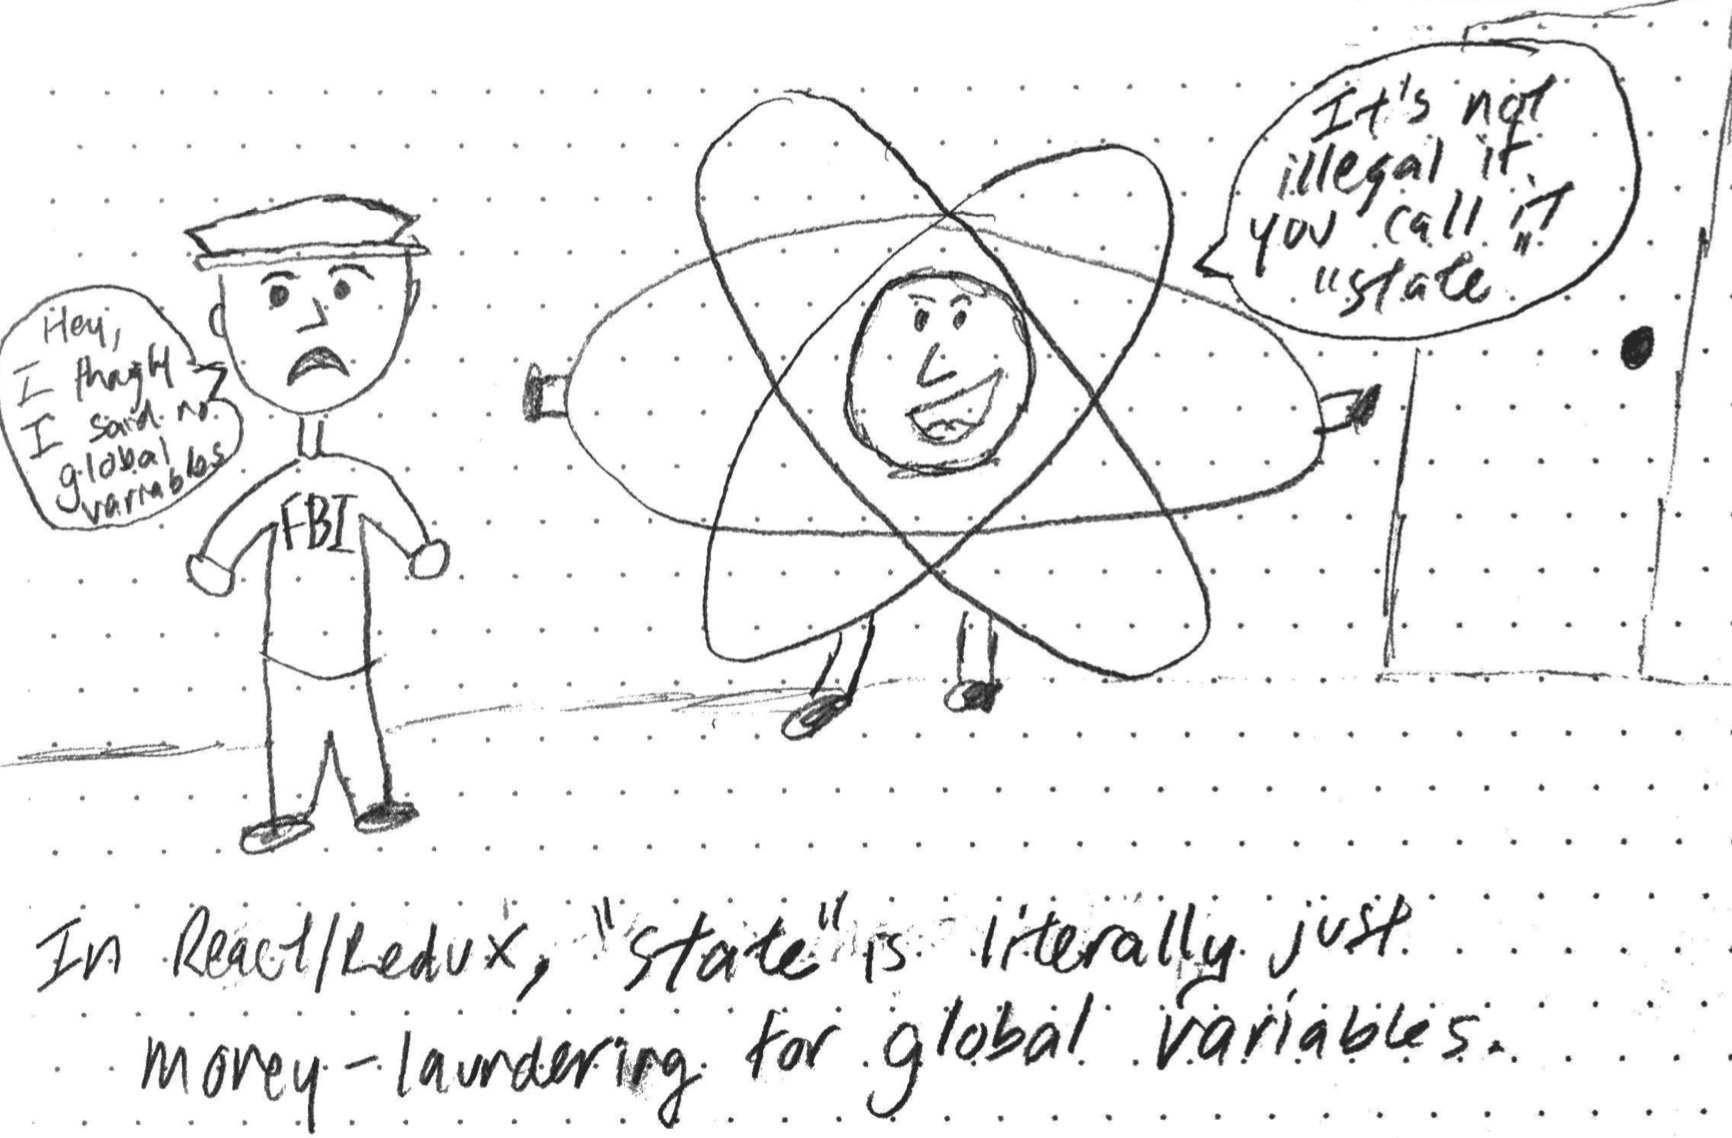 Hey,
I thought
I said no
global
variables
FBI
It's not
illegal if
you call it
"state"
In React/Redux, "state" is literally just
money-laundering for global variables.